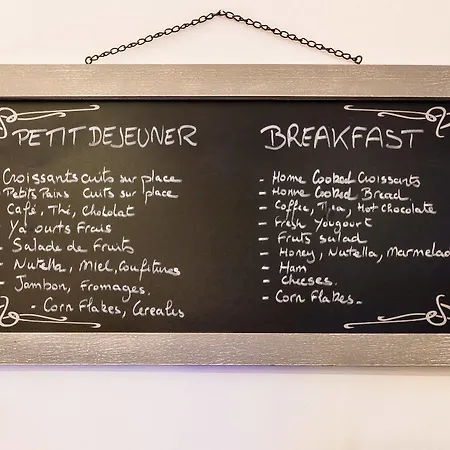 PETIT DEJEUNER
Croissants cuits sur place
Petits Pains cuits sur place
Café, Thé, Chocolat
- Ya ourts Frais
- Salade de Fruits
- Nutella, Miel, Confitures
- Jambon, Fromages.
- Corn Flakes, Cereales
BREAKFAST
- Home Cooked Croissants
- Home Cooked Bread.
- Coffee, Tea, Hot Chocolate
- Fresh Yougourt
- Fruits salad
- Honey, Nutella, Marmelad
- Ham
- Cheeses.
- Corn Flakes.-